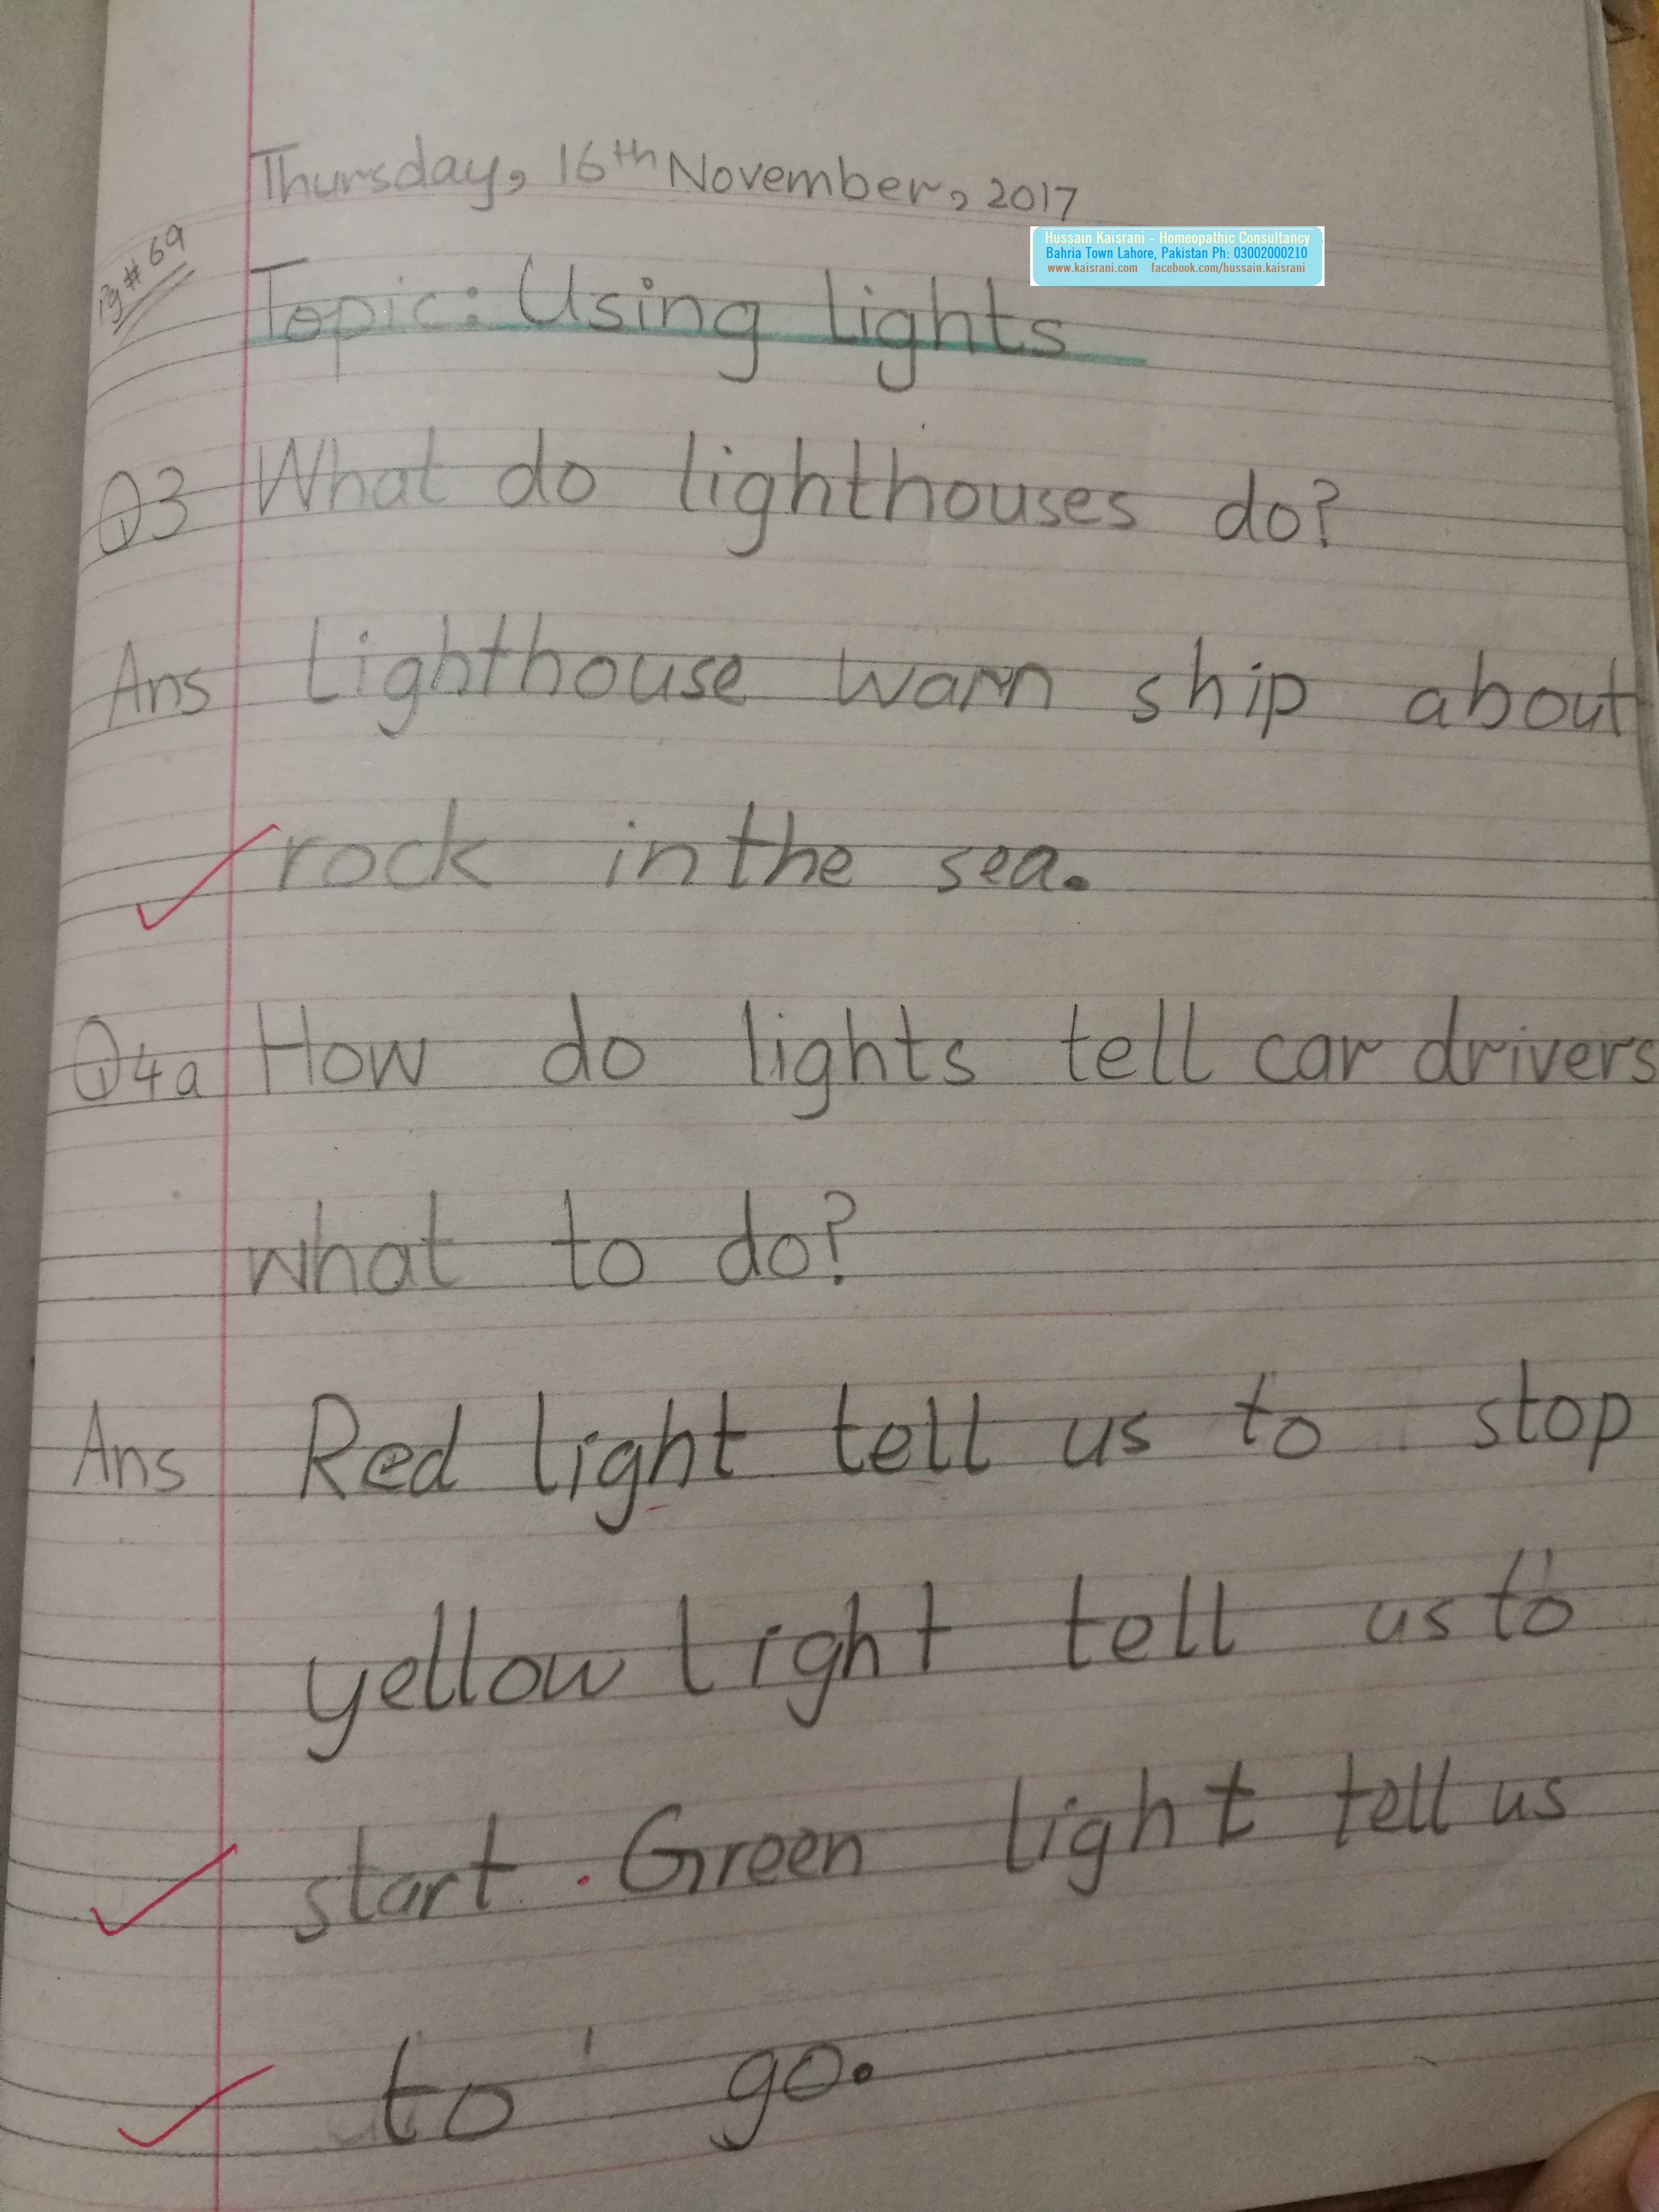 Thursday, 16th November, 2017
Pg # 69
Hussain Kaisrani - Homeopathic Consultancy
Bahria Town Lahore, Pakistan Ph: 03002000210
www.kaisrani.com facebook.com/hussain.kaisrani
Topic: Using lights
Q3 What do lighthouses do?
Ans Lighthouse warn ship about
rock in the sea.
Q4a How do lights tell car drivers
what to do?
Ans Red light tell us to stop
yellow light tell us to
start . Green light tell us
to go.